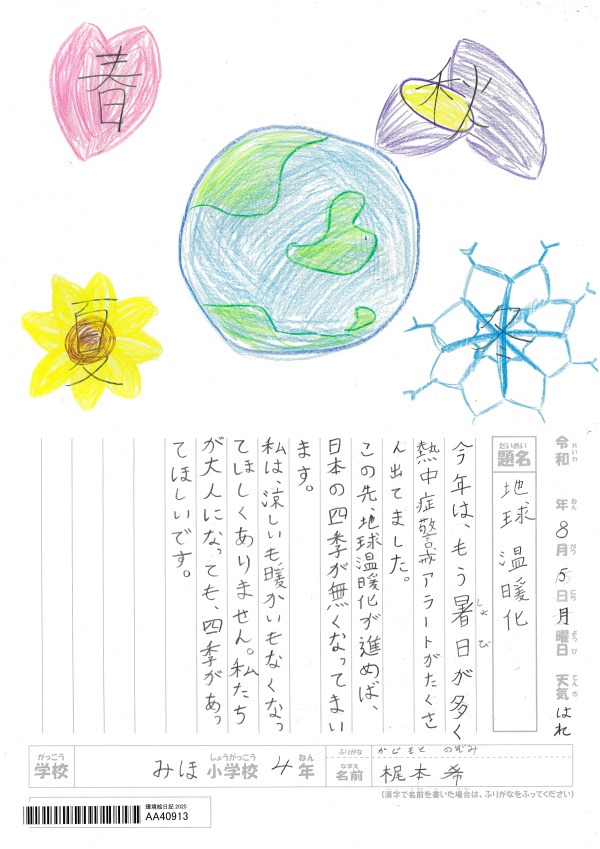 春
秋
夏
冬
令和 年 8月 5日 月曜日 天気 はれ
れいわ ねん がつ にち ようび てんき
だいめい
題名 地球温暖化
今年は、もう暑日が多く
しょ び
熱中症警戒アラートがたくさ
ん出てました。
この先、地球温暖化が進めば、
日本の四季が無くなってまい
ます。
私は、涼しいも、暖かいもなくなっ
てほしくありません。私たち
が大人になっても、四季があっ
てほしいです。
がっこう しょうがっこう ねん
学校 みほ 小学校 4 年
ふりがな かじもと のぞみ
なまえ
名前 梶本 希
(漢字で名前を書いた場合は、ふりがなをふってください)
環境絵日記 2025
AA40913